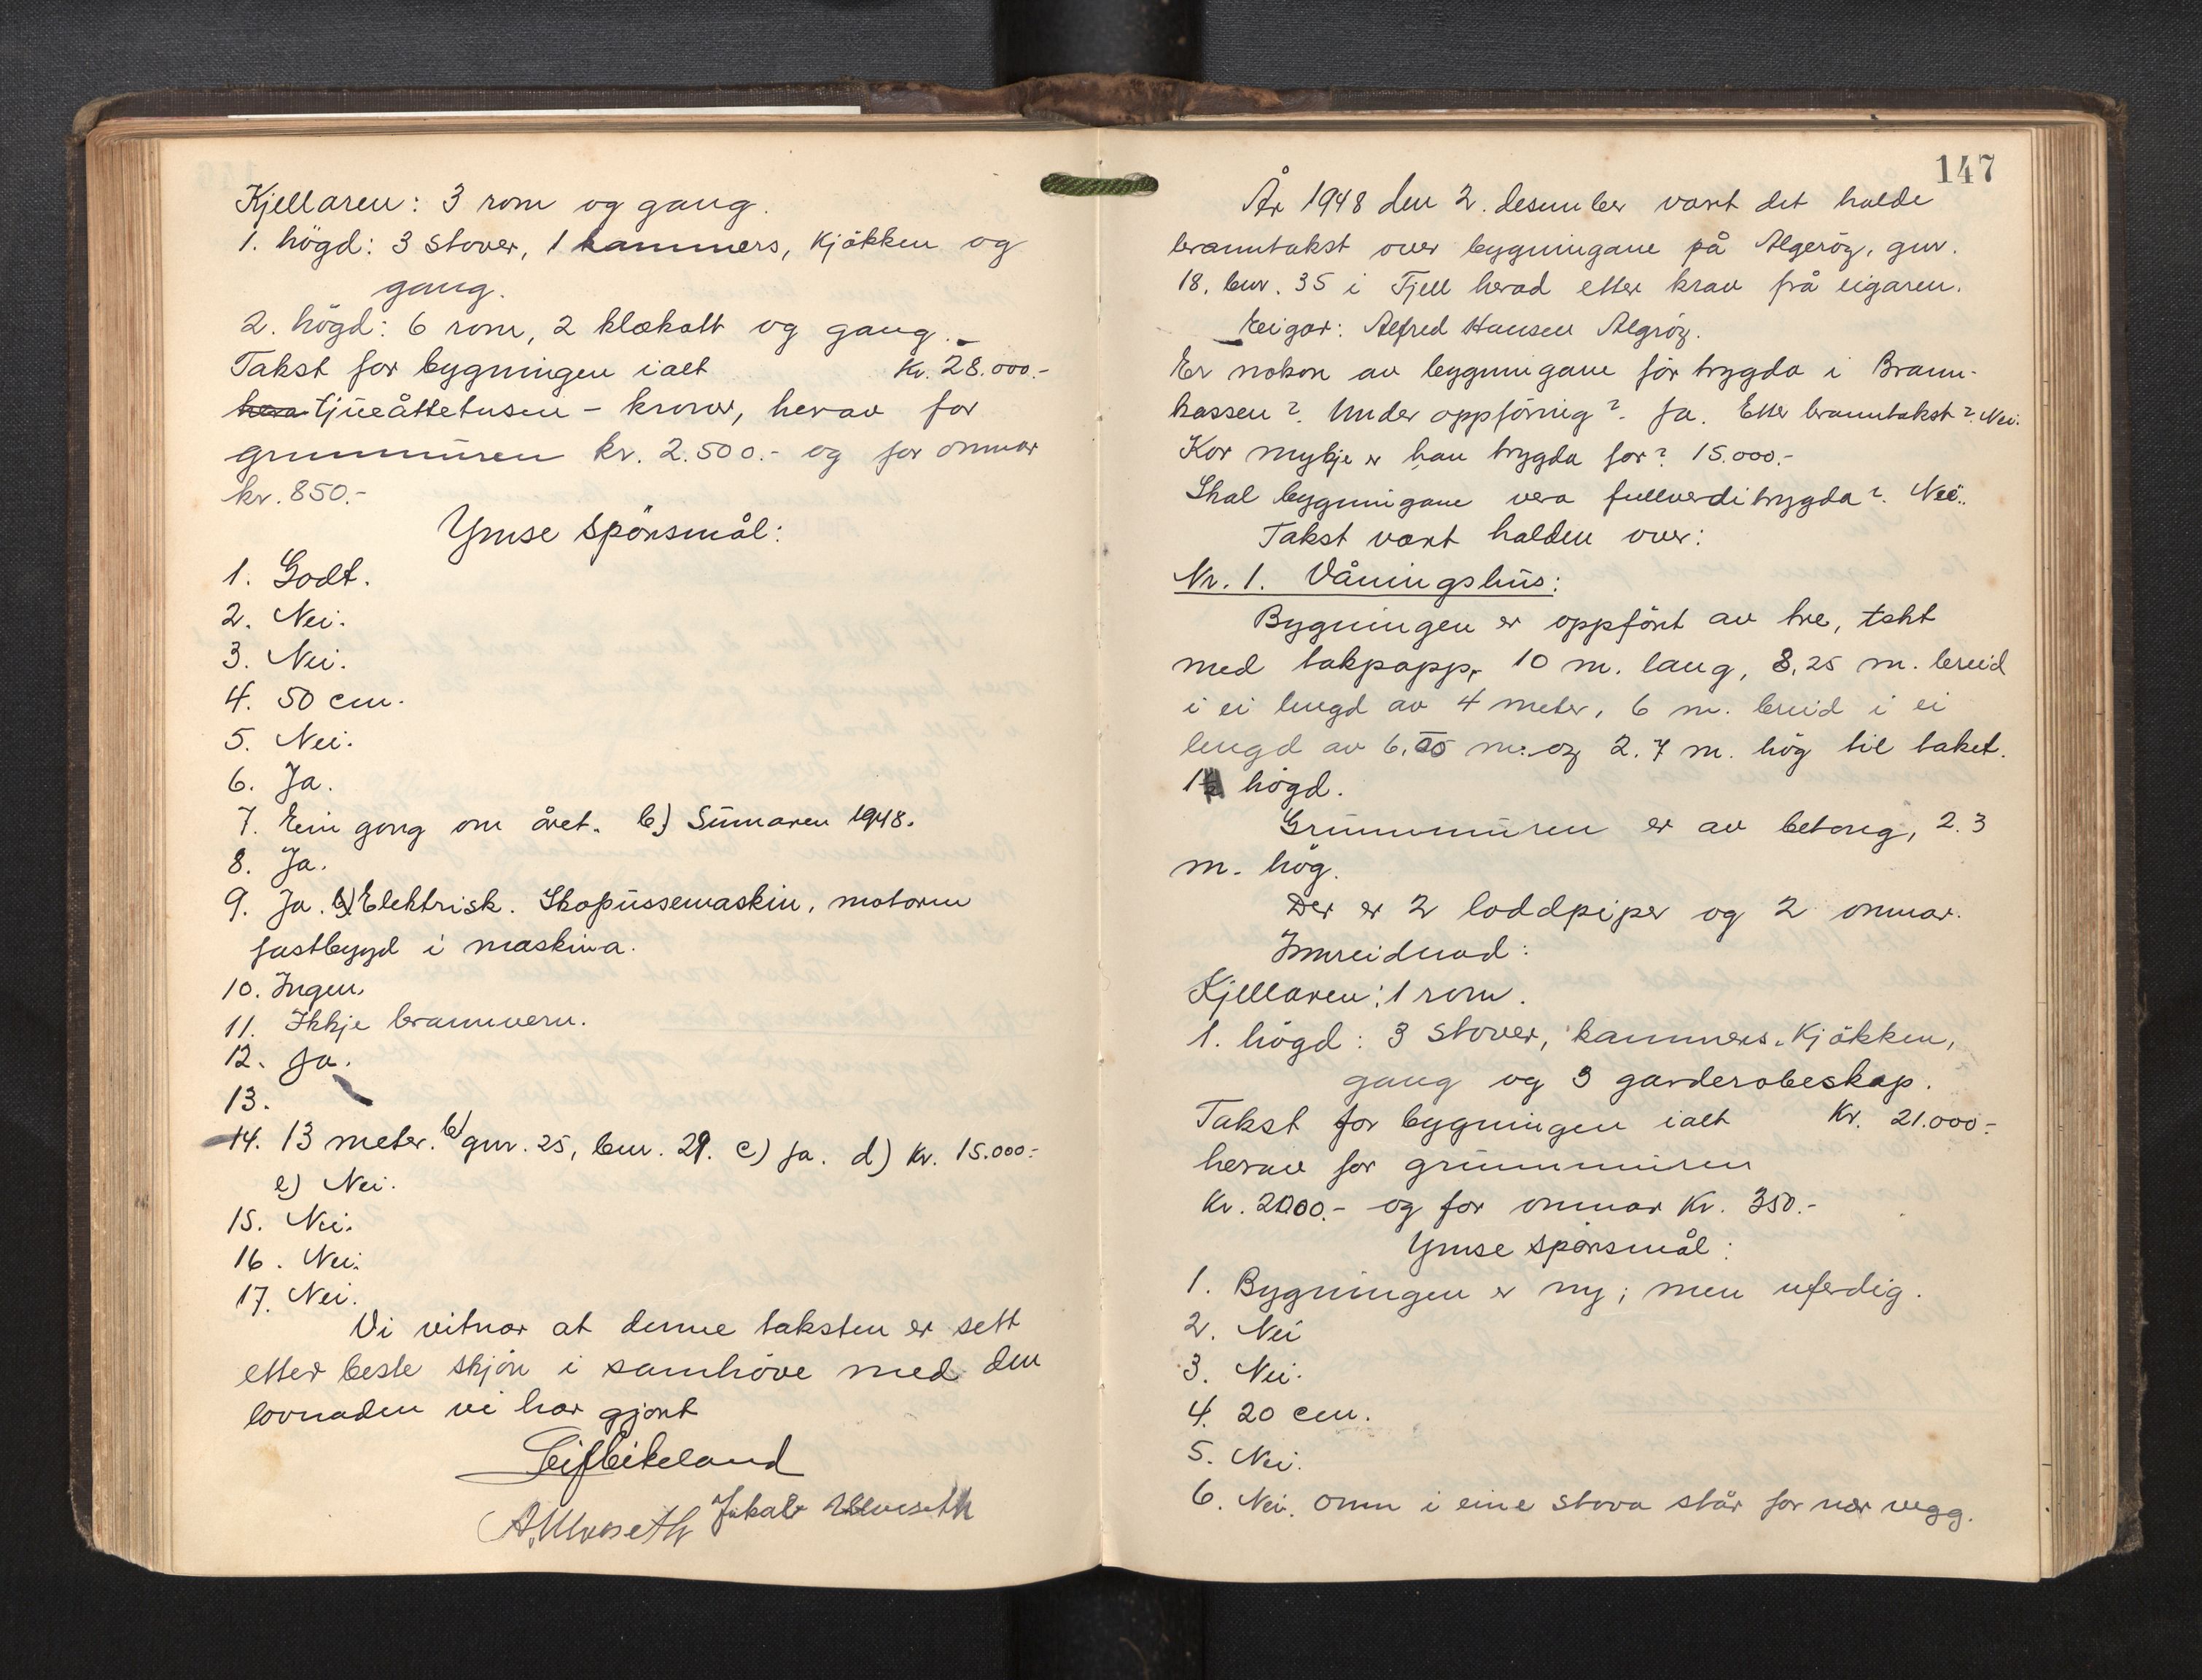 Kjellaren: 3 rom og gang.
1. högd: 3 stover, 1 kammers, kjökken og
gang.
2. högd: 6 rom, 2 klækott og gang.
Takst for bygningen ialt Kr. 28.000.-
tjueåttetusen - kroner, herav for
grunnmuren kr. 2.500.- og for omnar
kr. 850.-
Ymse spörsmål:
1. Godt.
2. Nei.
3. Nei.
4. 50 cm.
5. Nei.
6. Ja.
7. Ein gong om året. b) Sumaren 1948.
8. Ja.
9. Ja. b) Elektrisk. Skopussemaskin, motoren
fastbygd i maskina.
10. Ingen.
11. Ikkje brannvern.
12. Ja.
13.
14. 13 meter. b) gnr. 25, bnr. 29. c) Ja. d) Kr. 15.000.-
e) Nei.
15. Nei.
16. Nei.
17. Nei.
Vi vitnar at denne taksten er sett
etter beste skjön i samhöve med den
lovnaden vi har gjort
Leif Eikeland
A. Ulveseth Jakob Ulveseth
147
År 1948 den 2. desember vart det halde
branntakst over bygningane på Algeröy, gnr.
18, bnr. 35 i Fjell herad etter krav frå eigaren.
Eeigar: Alfred Hansen Algröy.
Er nokon av bygningane för trygda i Brann-
kassen? Under oppföring? Ja. Etter branntakst? Nei.
Kor mykje er han trygda for? 15.000.-
Skal bygningane vera fullverditrygda? Nei.
Takst vart halden over:
Nr. 1. Våningshus:
Bygningen er oppfört av tre, tekt
med takpapp, 10 m. lang, 8,25 m. breid
i ei lengd av 4 meter, 6 m. breid i ei
lengd av 6, m. og 2.7 m. hög til taket.
1 högd.
Grunnmuren er av betong, 2.3
m. hög.
Der er 2 loddpiper og 2 omnar.
Innreidnad:
Kjellaren: 1 rom.
1. högd: 3 stover, kammers, kjökken,
gang og 3 garderobeskap.
Takst for bygningen ialt Kr. 21.000.-
herav for grunnmuren
Kr. 2000.- og for omnar Kr. 350.-
Ymse spörsmål:
1. Bygningen er ny; men uferdig.
2. Nei
3. Nei.
4. 20 cm.
5. Nei.
6. Nei. Omn i eine stova står for nær vegg.